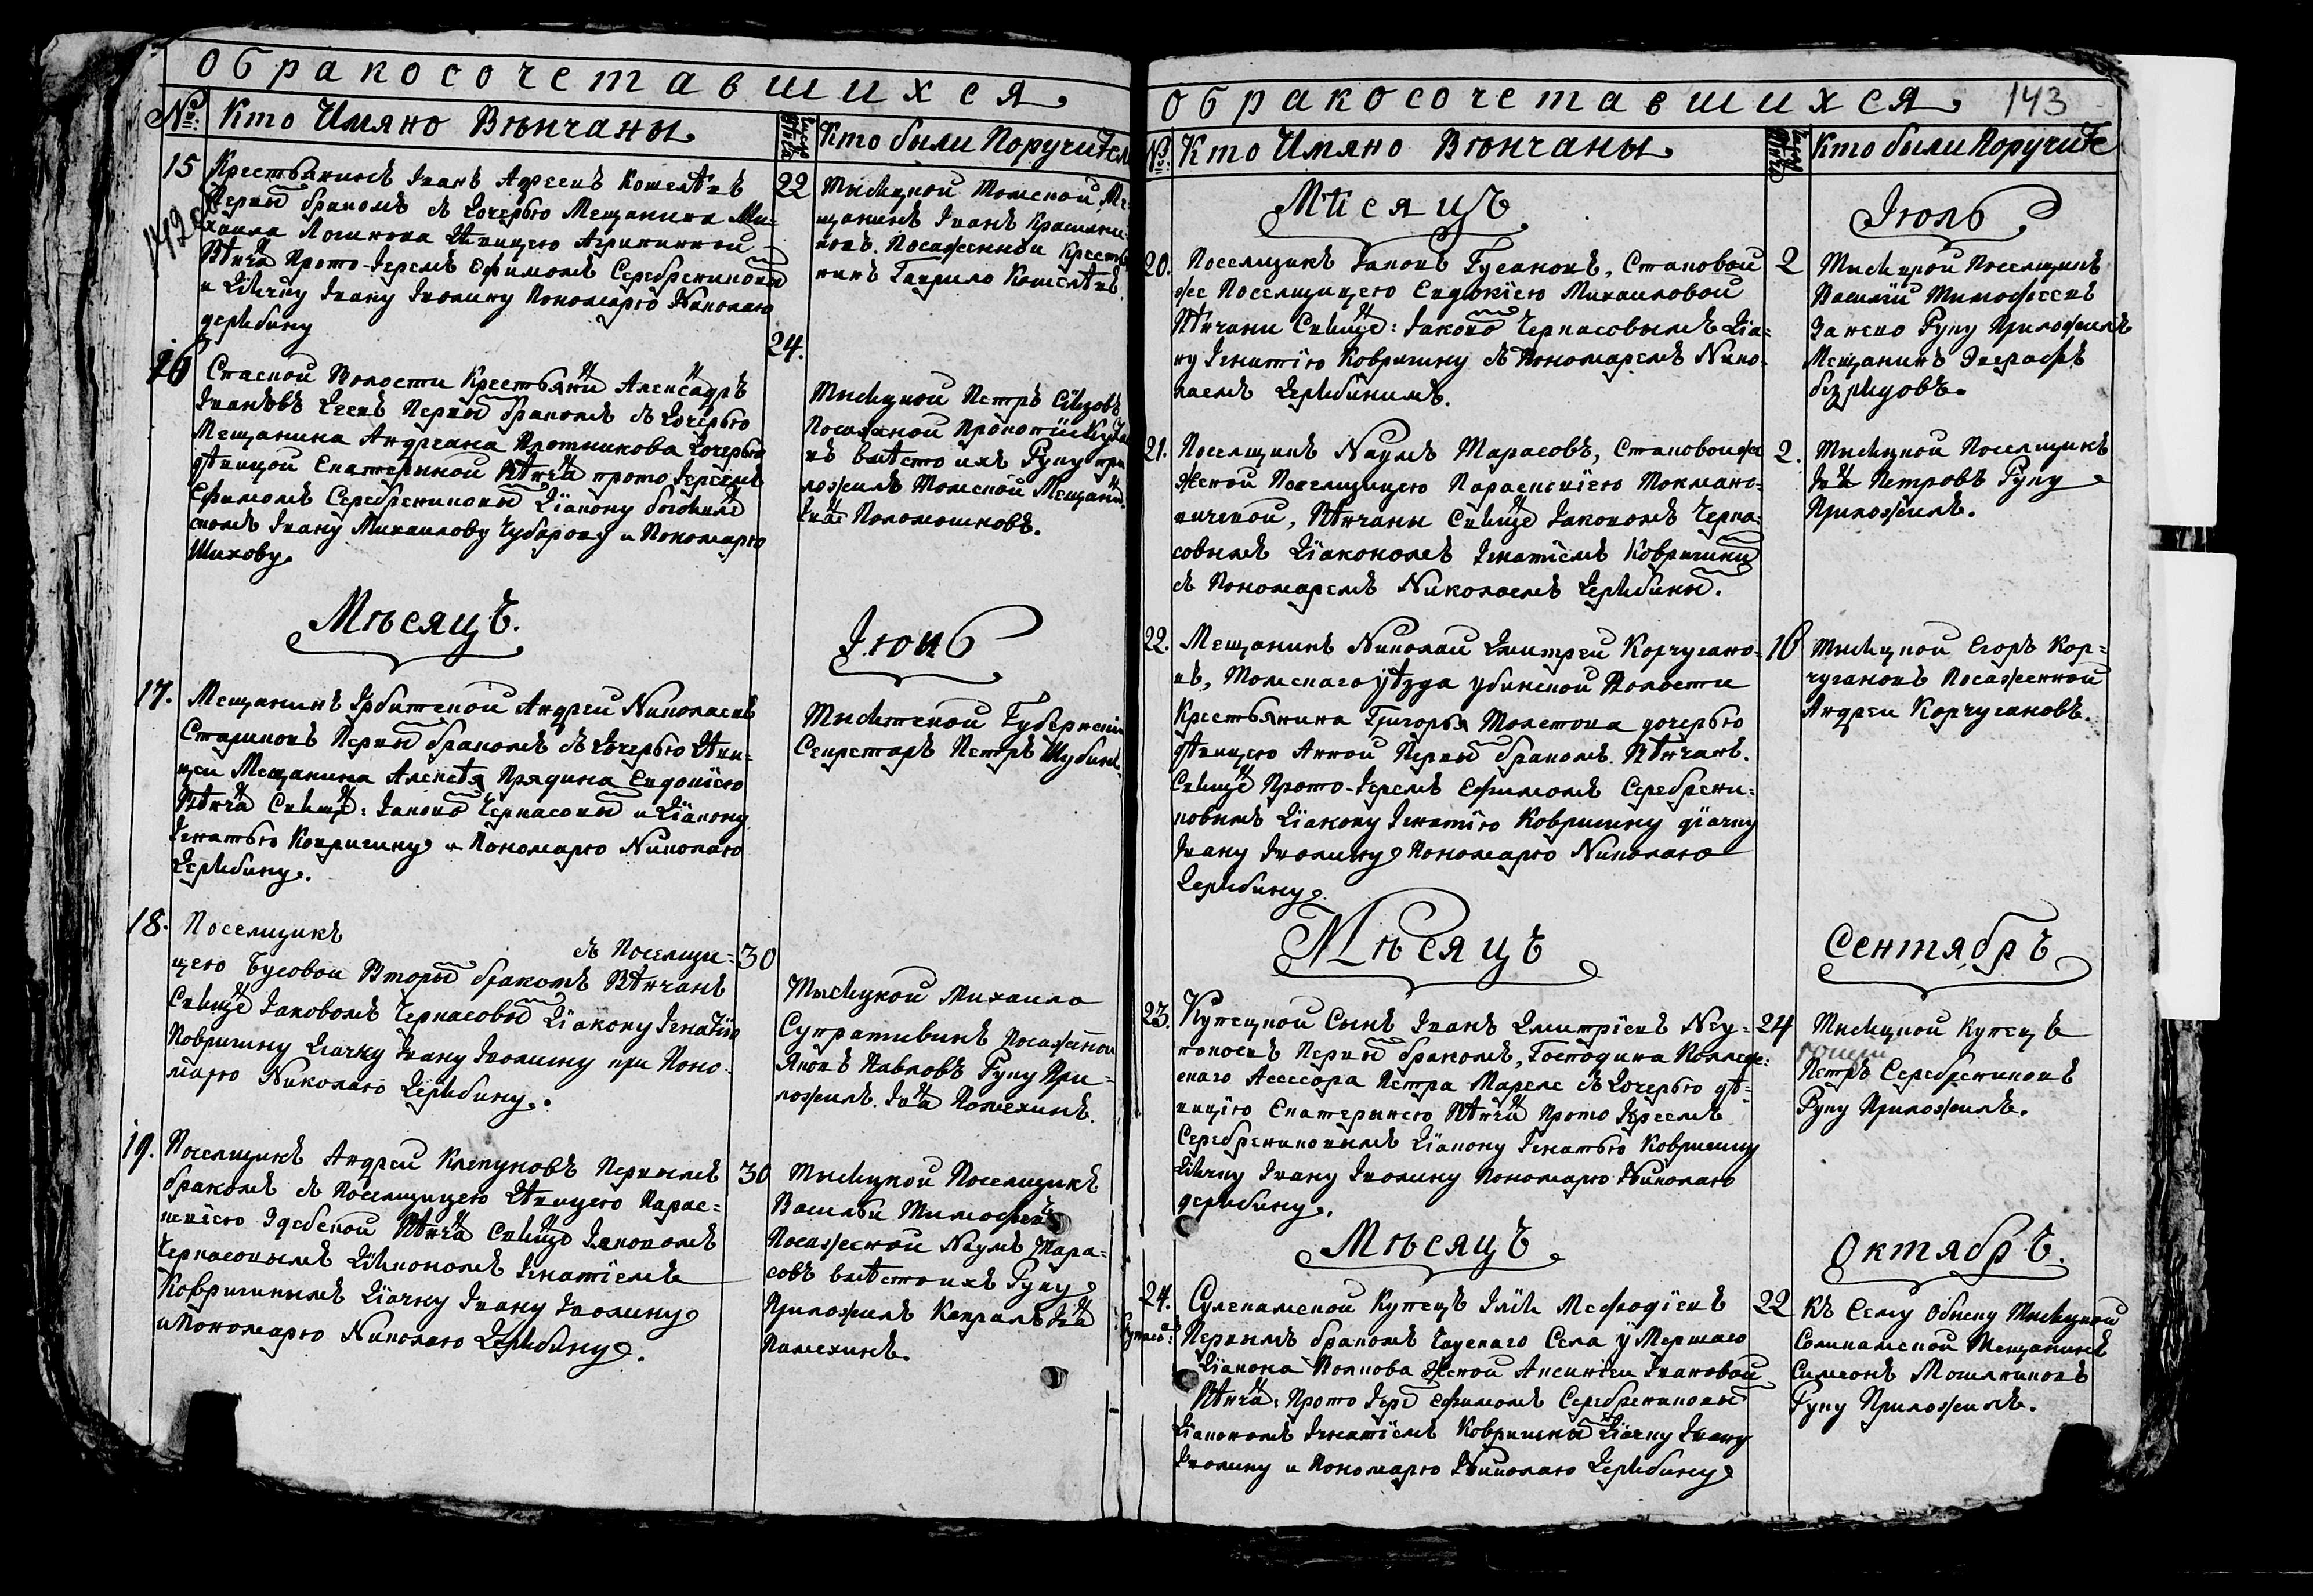 обракосочетавшихся
№ Кто Имяно Вѣнчаны
Кто были Поручители
15 Крестьянинъ Іванъ Агѣевъ Кошелѣвъ
Первы бракомъ съ Дочерью Мещанина Ми-
хаила Логинова Дѣвицею Агрипинною
Вѣнча Прото-Іереемъ Ефимомъ Серебрениковы
и Дьячку Івану Іволину Пономарю Николаю
дерябину
22 Тысяцкой Томской Ме-
щанинъ Іванъ Крашени-
ковъ. Посаженный Крестья
нинъ Гаврило Кошелѣвъ.
16 Спаской Волости Крестьяни Александръ
Івановъ Первы бракомъ съ Дочерью
Мещанина Андреана Плотникова Дочерью
дѣвицой Екатериной Вѣнча прото Іереемъ
Ефимомъ Серебрениковы Діакону
Івану Михаилову Чубарову и Пономарю
Шихову
24.
Тысяцкой Петръ Сизовъ
Посаженой Прокопій
въ вмѣсто ихъ Руку при
ложилъ Томской Мещани
Іва Поломошновъ.
Мѣсяцъ.
Іюнь
17. Мещанинъ Ірбитской Андреи Николаевъ
Стариковъ Первы бракомъ съ Дочерью Дѣви-
цеи Мещанина Алексѣя Прядина Евдокіею
Вѣнча Священ: Іаково Черкасовы и Діакону
Ігнатью Ковригину и Пономарю Николаю
Дерябину.
Тысятской Губернскій
Секретарь Петръ Шубинъ.
18. Поселщикъ
съ Поселщи-
цею Бусовой Вторы бракомъ Вѣнчанъ
Священ Іаковомъ Черкасовы Діакону Ігнатію
Ковригину Дьячку Івану Іволину при Поно-
марю Николаю Дерябину.
30
Тысяцкой Михаило
Супротивинъ Посаженои
Яковъ Павловъ Руку При-
ложилъ. Іва Помехинъ.
19. Поселщикъ Андреи Клепуновъ Первымъ
бракомъ съ Поселщицею Дѣвицею Парас-
кевіею Здебской Вѣнча Священ Іаковомъ
Черкасовымъ Діякономъ Ігнатіемъ
Ковригинымъ Дїачку Івану Іволину
и Пономарю Николаю Дерябину.
30 Тысяцкой Поселщикъ
Василъи Тимофеевъ
Посаженои Наумъ Тара-
совъ вмѣсто ихъ Руку
Приложилъ Капралъ Іва
Памехинъ.
обракосочетавшихся 143
№ Кто Имяно Вѣнчаны
Кто были Поручите
Мѣсяцъ
Іюль
20. Поселщикъ Іаковъ Гусаковъ, Становой
же Поселщицею Евдокіею Михаиловой
Вѣнчаны Священ: Іаково Черкасовымъ Діа-
ку Ігнатію Ковригину съ Пономаремъ Нико-
лаемъ Дерябинымъ.
2 Тысяцкой Поселщикъ
Василій Тимофеевъ
За него Руку Приложилъ
Мещанинъ Евграфъ
безрядовъ.
21. Поселщикъ Наумъ Тарасовъ, Становои же
женой Поселщицею Параскевіею Токмано-
вичевой, Вѣнчаны Священ Іаковомъ Черка-
совымъ Діакономъ Ігнатіемъ Ковригины
съ Пономаремъ Николаемъ Дерябины.
2. Тысяцкой Поселщикъ
Іва Петровъ Руку
Приложилъ.
22. Мещанинъ Николаи Дмитреи Корчугано-
въ, Томскаго уѣзда убинской Волости
Крестьянина Григорья Молетова дочерью
дѣвицею Анной Первы бракомъ. Вѣнчанъ.
Священ Прото-Іереемъ Ефимомъ Серебрени-
ковымъ Діакону Ігнатію Ковригину дїачку
Івану Іволину Пономарю Николаю
Дерябину.
16 Тысяцкой Егоръ Кор-
чугановъ Посаженной
Андреи Корчугановъ.
Мѣсяцъ
Сентябрь
23. Купецкой Сынъ Іванъ Дмитріевъ Неу-
покоевъ Первы бракомъ, Господина Коллеж-
скаго Асессора Петра Марселс съ Дочерью дѣ-
вицію Екатериною Вѣнча Прото Іереемъ
Серебрениковымъ Діакону Ігнатью Ковригину
Дьячку Івану Іволину Пономарю Николаю
дерябину.
24 Тысяцкой Купецъ
Петръ Серебрениковъ
Руку Приложилъ.
Мѣсяцъ
Октябрь.
24. Сулекамской Купецъ Ілія Мефодіевъ
Первымъ бракомъ Чаускаго Села умершаго
Діакона Попова Женой Аксинтеи Івановой
Вѣнча: Прото Іере Ефимомъ Серебрениковы
Діакономъ Ігнатіемъ Ковригины Діачку Івану
Іволину и Пономарю Николаю Дерябину
22 Къ Сему Обыску Тысяцкой
Соликамской Мещанинъ
Симеонъ Мошлниковъ
Руку Приложилъ.